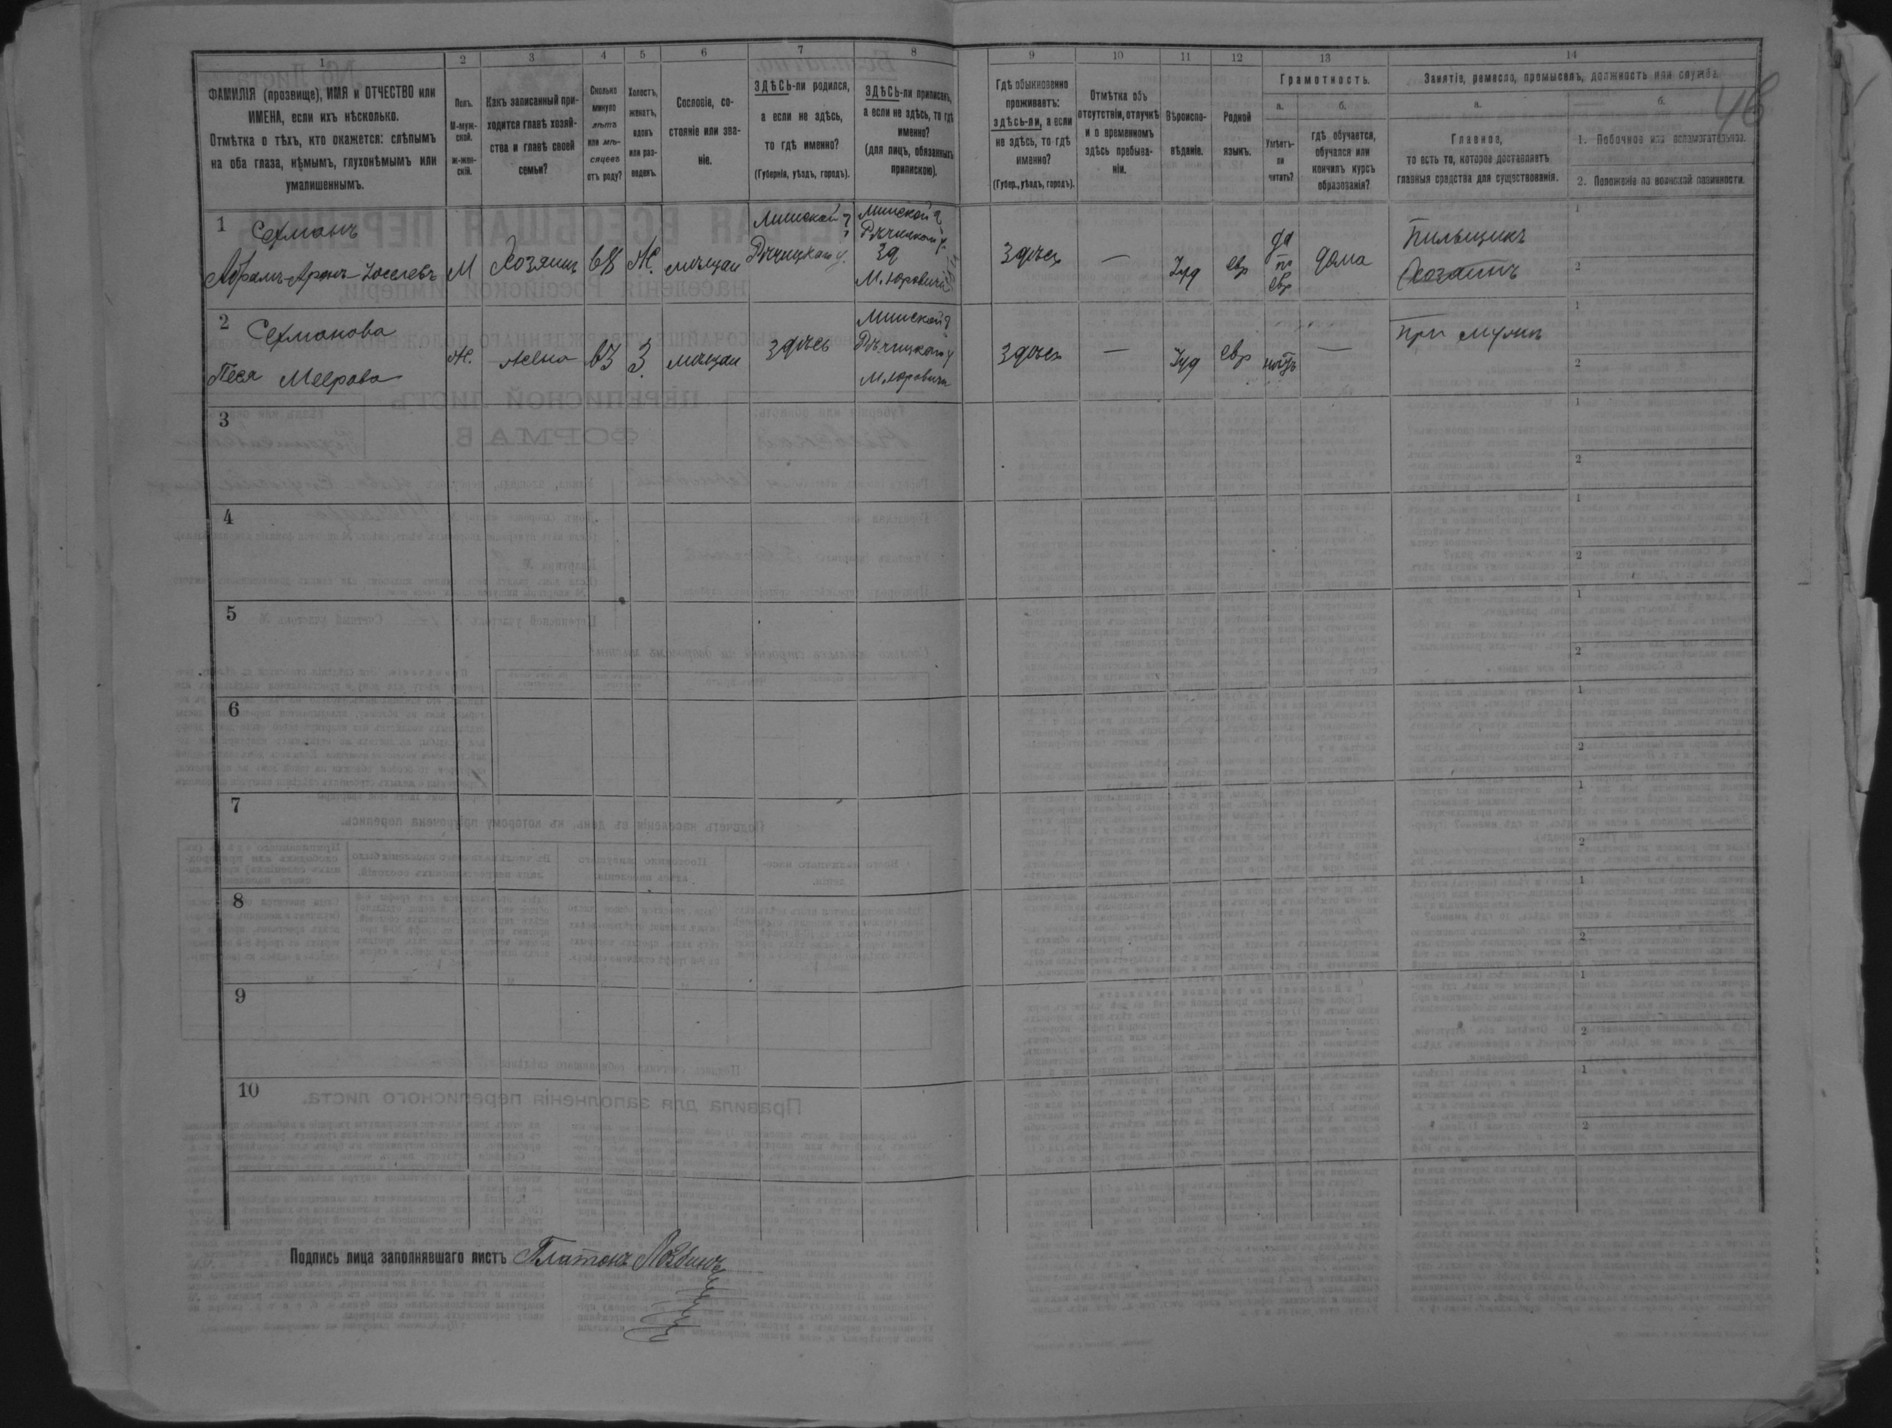 1 2 3 4 5 6 7 8 9 10 11 12 13 14
ФАМИЛІЯ (прозвище), ИМЯ и ОТЧЕСТВО или
ИМЕНА, если ихъ нѣсколько.
Отмѣтка о тѣхъ, кто окажется: слѣпымъ
на оба глаза, нѣмымъ, глухонѣмымъ или
умалишеннымъ.
Полъ.
М-муж-
ской.
ж-жен-
скій.
Какъ записанный при-
ходится главѣ хозяй-
ства и главѣ своей
семьи?
Сколько
минуло
лѣтъ
или мѣ-
сяцевъ
отъ роду?
Холостъ,
женатъ,
вдовъ
или раз-
веденъ.
Сословіе, со-
стояніе или зва-
ніе.
ЗДѢСЬ-ли родился,
а если не здѣсь,
то гдѣ именно?
(Губернія, уѣздъ, городъ).
ЗДѢСЬ-ли приписанъ,
а если не здѣсь, то гдѣ
именно?
(для лицъ, обязанныхъ
припискою).
Гдѣ обыкновенно
проживаетъ:
здѣсь-ли, а если
не здѣсь, то гдѣ
именно?
(Губер., уѣздъ, городъ).
Отмѣтка объ
отсутствіи, отлучкѣ
и о временномъ
здѣсь пребыва-
ніи.
Вѣроиспо-
вѣданіе.
Родной
языкъ.
Грамотность.
а.
Умѣетъ-
ли
читать?
б.
гдѣ обучается,
обучался или
кончилъ курсъ
образованія?
Занятіе, ремесло, промыселъ, должность или служба.
а.
Главное,
то есть то, которое доставляетъ
главныя средства для существованія.
б.
1. Побочное или вспомогательное.
2. Положеніе по воинской повинности.
46
1
Сехманъ
Абрамъ-Аронъ Іоселевъ
М
Хозяинъ
68
Ж.
мѣщан
Минской г
Рѣчицкаго у.
Минской г
Рѣчицкаго у.
М. Юровичи
Здѣсь
—
Іуд
евр
да
по
евр
дома
Пильщикъ
Хозяинъ
1
2
2
Сехманова
Песя Меерова
Ж.
жена
63
З.
мѣщан
здѣсь
Минской г
Рѣчицкаго у
М. Юровичи
Здѣсь
—
Іуд
евр
нѣтъ
—
При мужѣ
1
2
3
1
2
4
1
2
5
1
2
6
1
2
7
1
2
8
1
2
9
1
2
10
1
2
Подпись лица заполнявшаго листъ Платонъ